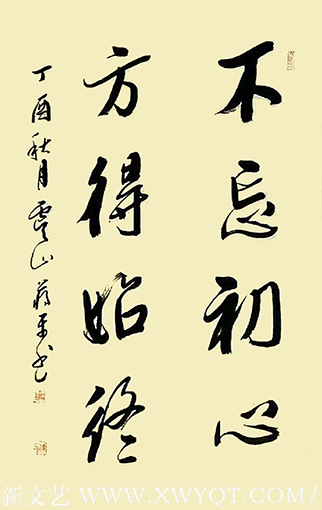 不忘初心
方得始终
丁酉秋月雲山蒋平书
新文艺 WWW.XWYQT.COM/